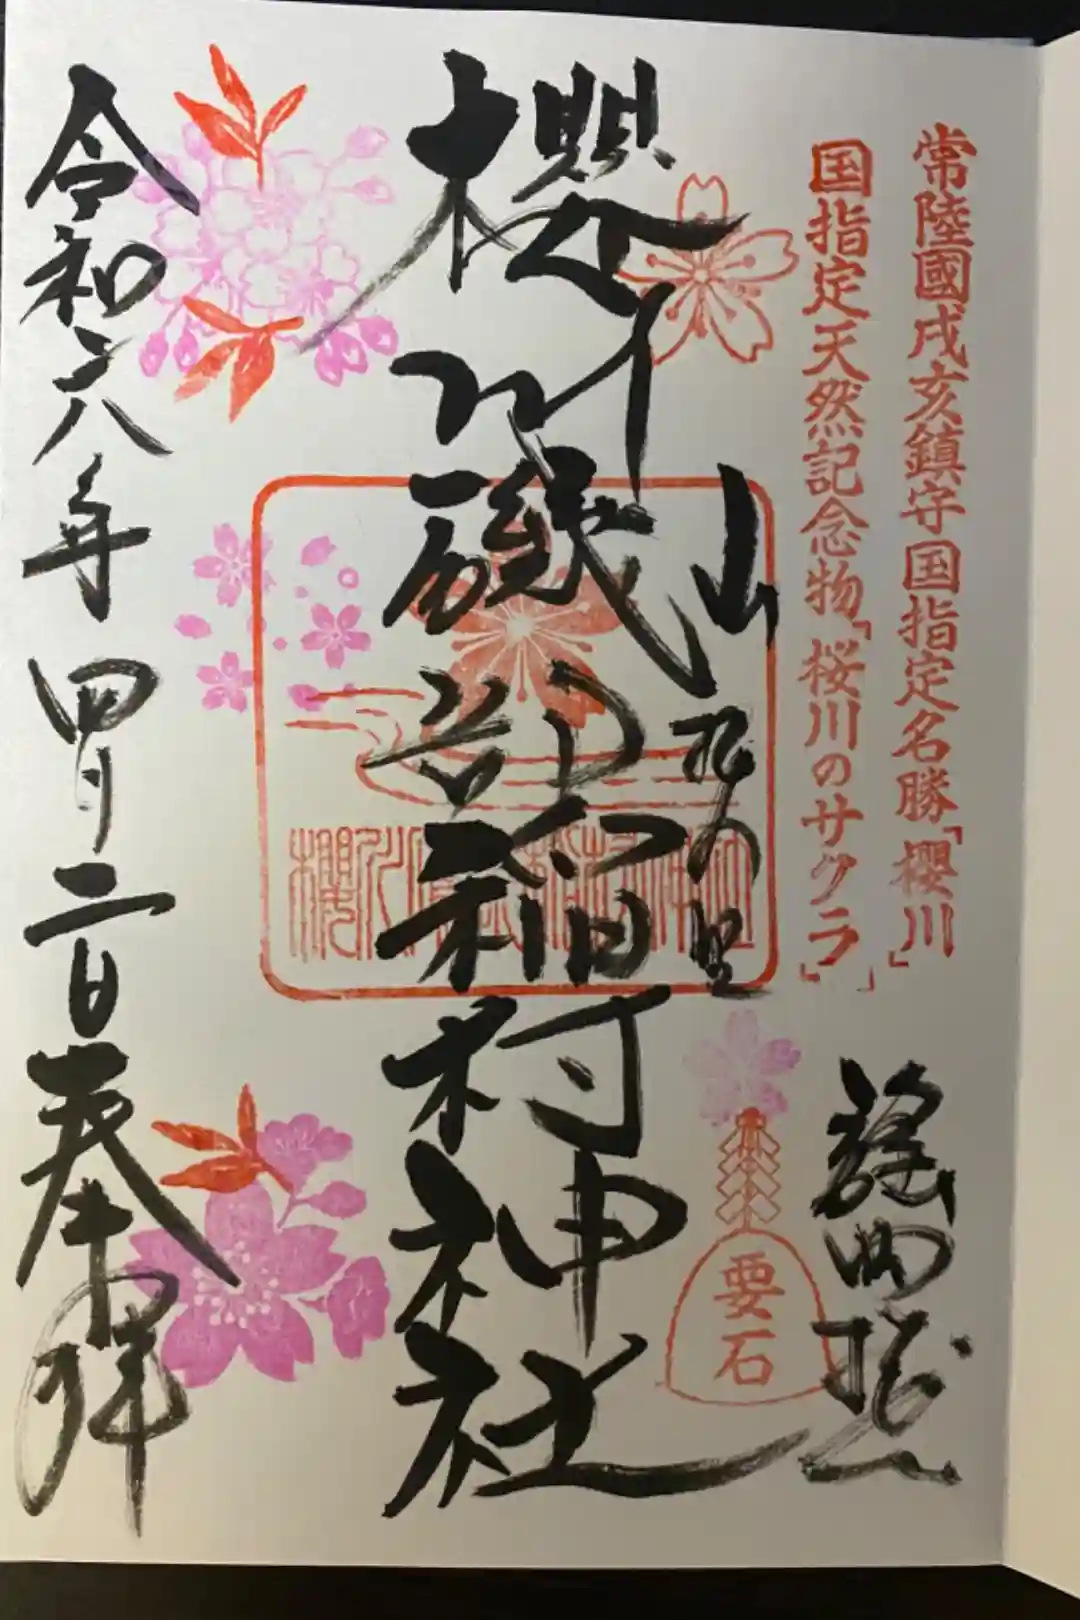 常陸國戌亥鎮守国指定名勝「櫻川」
国指定天然記念物「桜川のサクラ」
謡曲
山桜の里
櫻川磯部稲村神社
櫻川磯部稲村神社
要石
令和六年四月二日奉拝